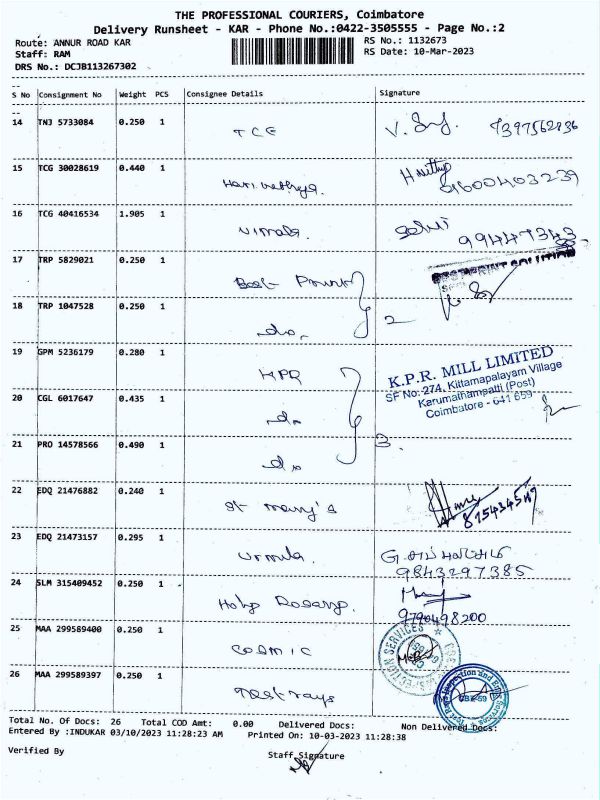 THE PROFESSIONAL COURIERS, Coimbatore
Delivery Runsheet - KAR - Phone No.:0422-3505555 - Page No.:2
Route: ANNUR ROAD KAR
RS No.: 1132673
Staff: RAM
RS Date: 10-Mar-2023
DRS No.: DCJB113267302
S No Consignment No Weight PCS Consignee Details Signature
14 TNJ 5733084 0.250 1 TCE
15 TCG 30028619 0.440 1
16 TCG 40416534 1.905 1 Vimala.
17 TRP 5829021 0.250 1 Best Print
BEST PRINT SOLUTION
18 TRP 1047528 0.250 1 do, 2
19 GPM 5236179 0.280 1 KPR
K.P.R. MILL LIMITED
SF No: 274, Kittamapalayam Village
Karumathampatti (Post)
Coimbatore - 641 659
20 CGL 6017647 0.435 1 do
21 PRO 14578566 0.490 1 do 3.
22 EDQ 21476882 0.240 1 St Mary's
23 EDQ 21473157 0.295 1 Urmila.
9843297385
24 SLM 315409452 0.250 1 Holy Rosary.
9790498200
25 MAA 299589400 0.250 1 COSMIC
26 MAA 299589397 0.250 1 Test rays
Total No. Of Docs: 26 Total COD Amt: 0.00 Delivered Docs: Non Delivered Docs:
Entered By :INDUKAR 03/10/2023 11:28:23 AM Printed On: 10-03-2023 11:28:38
Verified By Staff Signature